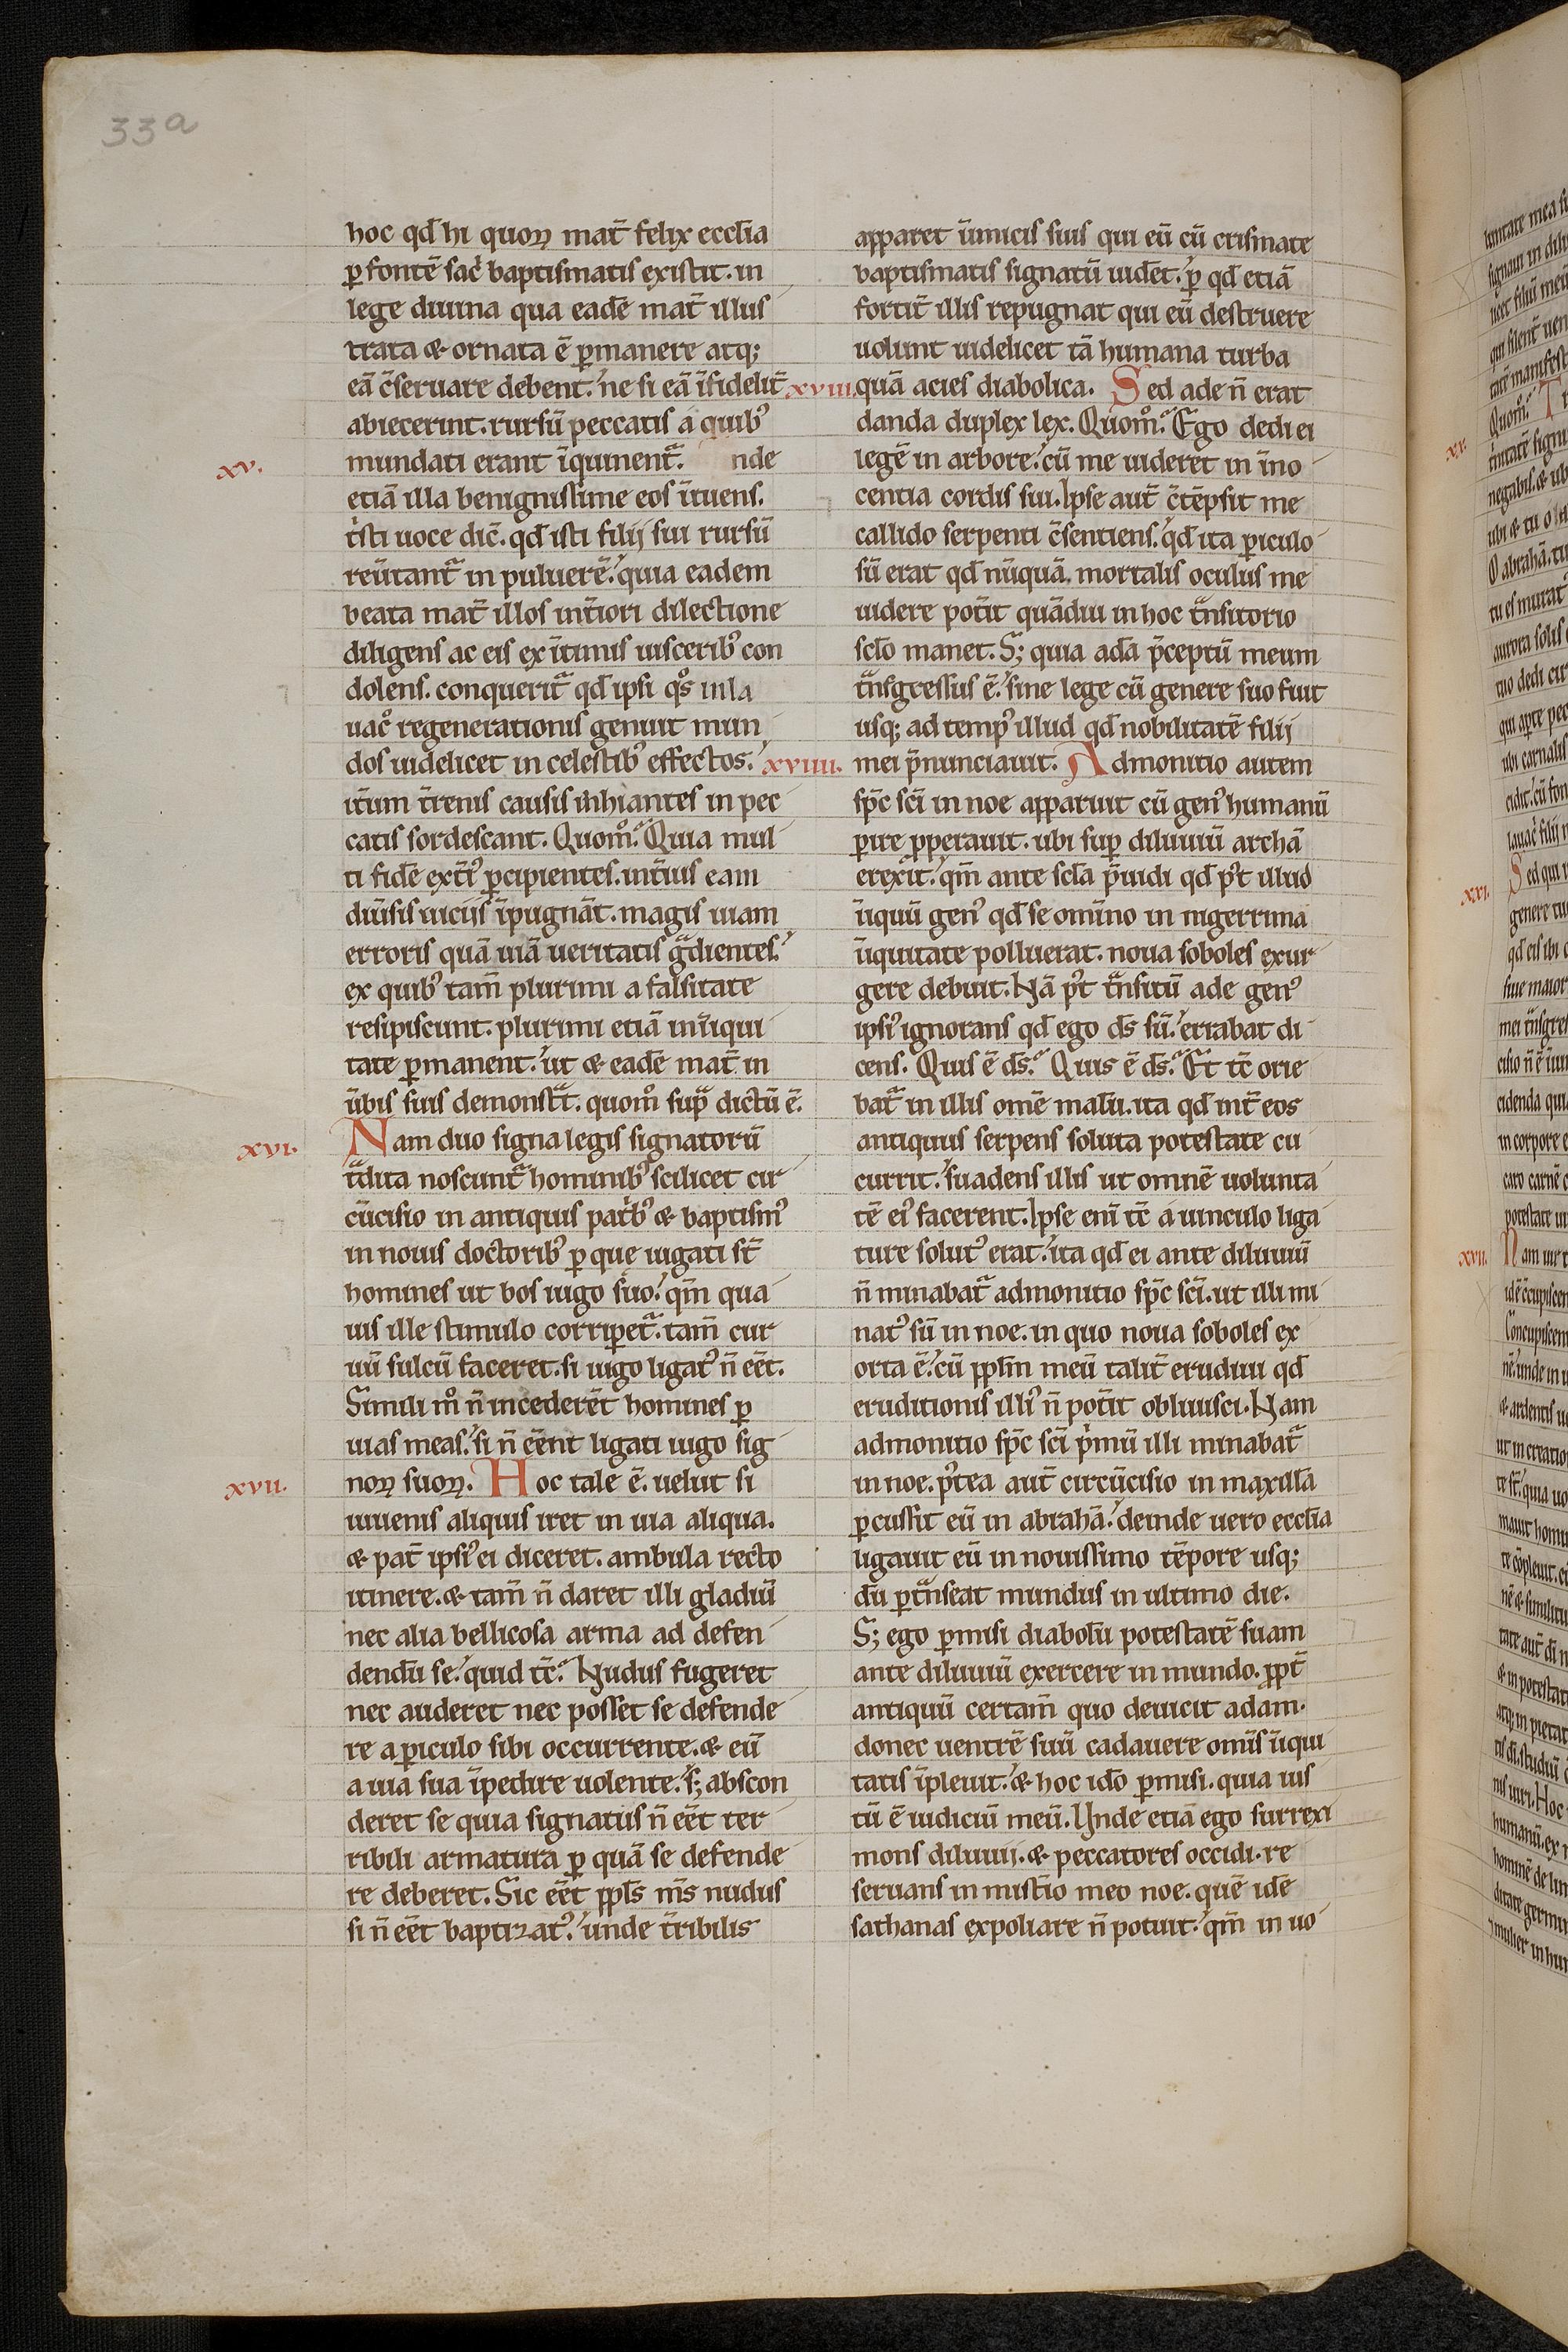 33a
hoc qđ hi quoꝝ mat̄ felix eccl̄ia
ꝑ fontē sac̓ baptismatis existit. in
lege diuina qua eadē mat̄ illus
trata & ornata ē ꝑmanere atq;
eā c̄seruare debent.' ne si eā īfidelit̄
abiecerint. rursū peccatis a quibꝰ
xv. mundati erant īquinent᷑. nde
etiā illa benignissime eos ītuens.
t̓sti uoce dic̄. qđ isti filij sui rursū
reūtant᷑ in puluerē.' quia eadem
beata mat̄ illos int̄iori dilectione
diligens ac eis ex ītimis uisceribꝰ con
dolens. conquerit᷑ qđ ipsi qͦs in la
uac̊ regenerationis genuit mun
dos uidelicet in celestibꝰ effectos.'
it̄um t̄renis causis inhiantes in pec
catis sordescant. Quom̊. Quia mul
ti fidē ext̄iꝰ ꝑcipientes. int̄ius eam
diūsis uicijs īpugnāt. magis uiam
erroris quā uiā ueritatis gᷓdientes.'
ex quibꝰ tam̄ plurimi a falsitate
resipiscunt. plurimi etiā in iniqui
tate ꝑmanent.' ut & eadē mat̄ in
ūbis suis demonstᷓt. quom̊ supᷓ dictū ē.
xvi. Nam duo signa legis signatorū
tᷓdita noscunt᷑ hominibꝰ scilicet cir
cūcisio in antiquis pat̓bꝰ & baptismꝰ
in nouis doctoribꝰ ꝑ que iugati st̄
homines ut bos iugo suo.' qm̄ qua
uis ille stimulo corriperet᷑. tam̄ cur
uū sulcū faceret. si iugo ligatꝰ n̄ eēt.
Simili m̊ n̄ incederēt homines ꝑ
uias meas.' si n̄ eēnt ligati iugo sig
xvii. noꝝ suoꝝ. Hoc tale ē. uelut si
iuuenis aliquis iret in uia aliqua.
& pat̄ ipsiꝰ ei diceret. ambula recto
itinere. & tam̄ n̄ daret illi gladiū
nec alia bellicosa arma ad defen
dendū se.' quid tc̄. Nudus fugeret
nec auderet nec posset se defende
re a ꝑiculo sibi occurrente. & eū
a uia sua īpedire uolente.' s; abscon
deret se quia signatus n̄ eēt ter
ribili armatura ꝑ quā se defende
re deberet. Sic eēt ppl̄s m̄s nudus
si n̄ eēt baptizatꝰ.' unde t̄ribilis
apparet inimicis suis qui eū cū crismate
baptismatis signatū uidēt.' ꝑ qđ etiā
fortit̄ illis repugnat qui eū destruere
uolunt uidelicet tā humana turba
xviii. quā acies diabolica. Sed ade n̄ erat
danda duplex lex. Quom̊. Ego dedi ei
legē in arbore.' cū me uideret in īno
centia cordis sui. Ipse aut̄ c̄tēpsit me
callido serpenti c̄sentiens.' qđ ita ꝑiculo
sū erat qđ nūquā. mortalis oculus me
uidere pot̄it quādiu in hoc tᷓnsitorio
scl̄o manet. S; quia adā p̄ceptū meum
tᷓnsgressus ē.' sine lege cū genere suo fuit
usq; ad tempꝰ illud qđ nobilitatē filij
xviiii. mei p̄nunciauit. Admonitio autem
sp̄c sc̄i in noe apparuit cū genꝰ humanū
ꝑire ꝓperauit. ubi suꝑ diluuiū archā
erexit.' qm̄ ante scl̄a p̄uidi qđ pꝰt illud
iniquū genꝰ qđ se omīno in nigerrima
iniquitate polluerat. noua soboles exur
gere debuit. Nā pꝰt tᷓnsitū ade genꝰ
ipsiꝰ ignorans qđ ego ds̄ sū.' errabat di
cens. Quis ē ds̄. Quis ē ds̄. Et tc̄ orie
bat᷑ in illis omē malū. ita qđ int̄ eos
antiquus serpens soluta potestate cu
currit.' suadens illis ut omnē uolunta
tē eiꝰ facerent. Ipse eni tc̄ a uinculo liga
ture solutꝰ erat.' ita qđ ei ante diluuiū
n̄ minabat᷑ admonitio sp̄c sc̄i. ut illi mi
natꝰ sū in noe. in quo noua soboles ex
orta ē.' cū ppl̄m meū talit̄ erudiui qđ
eruditionis illiꝰ n̄ pot̄it obliuisci. Nam
admonitio sp̄c sc̄i p̓mū illi minabat᷑
in noe. pꝰtea aut̄ circūcisio in maxilla
ꝑcussit eū in abrahā.' deinde uero eccl̄ia
ligauit eū in nouissimo tēpore usq;
dū ꝑtᷓnseat mundus in ultimo die.
S; ego ꝑmisi diabolū potestatē suam
ante diluuiū exercere in mundo. ꝓpt̄
antiquū certam̄ quo deuicit adam.
donec uentrē suū cadauere omīs iniqui
tatis īpleuit.' & hoc ido ꝑmisi. quia ius
tū ē iudiciū meū. Unde etiā ego surrexi
mons diluuij. & peccatores occidi. re
seruans in mist̄io meo noe. quē idē
sathanas expoliare n̄ potuit.' qm̄ in uo
xx.
xxi.
xxii.